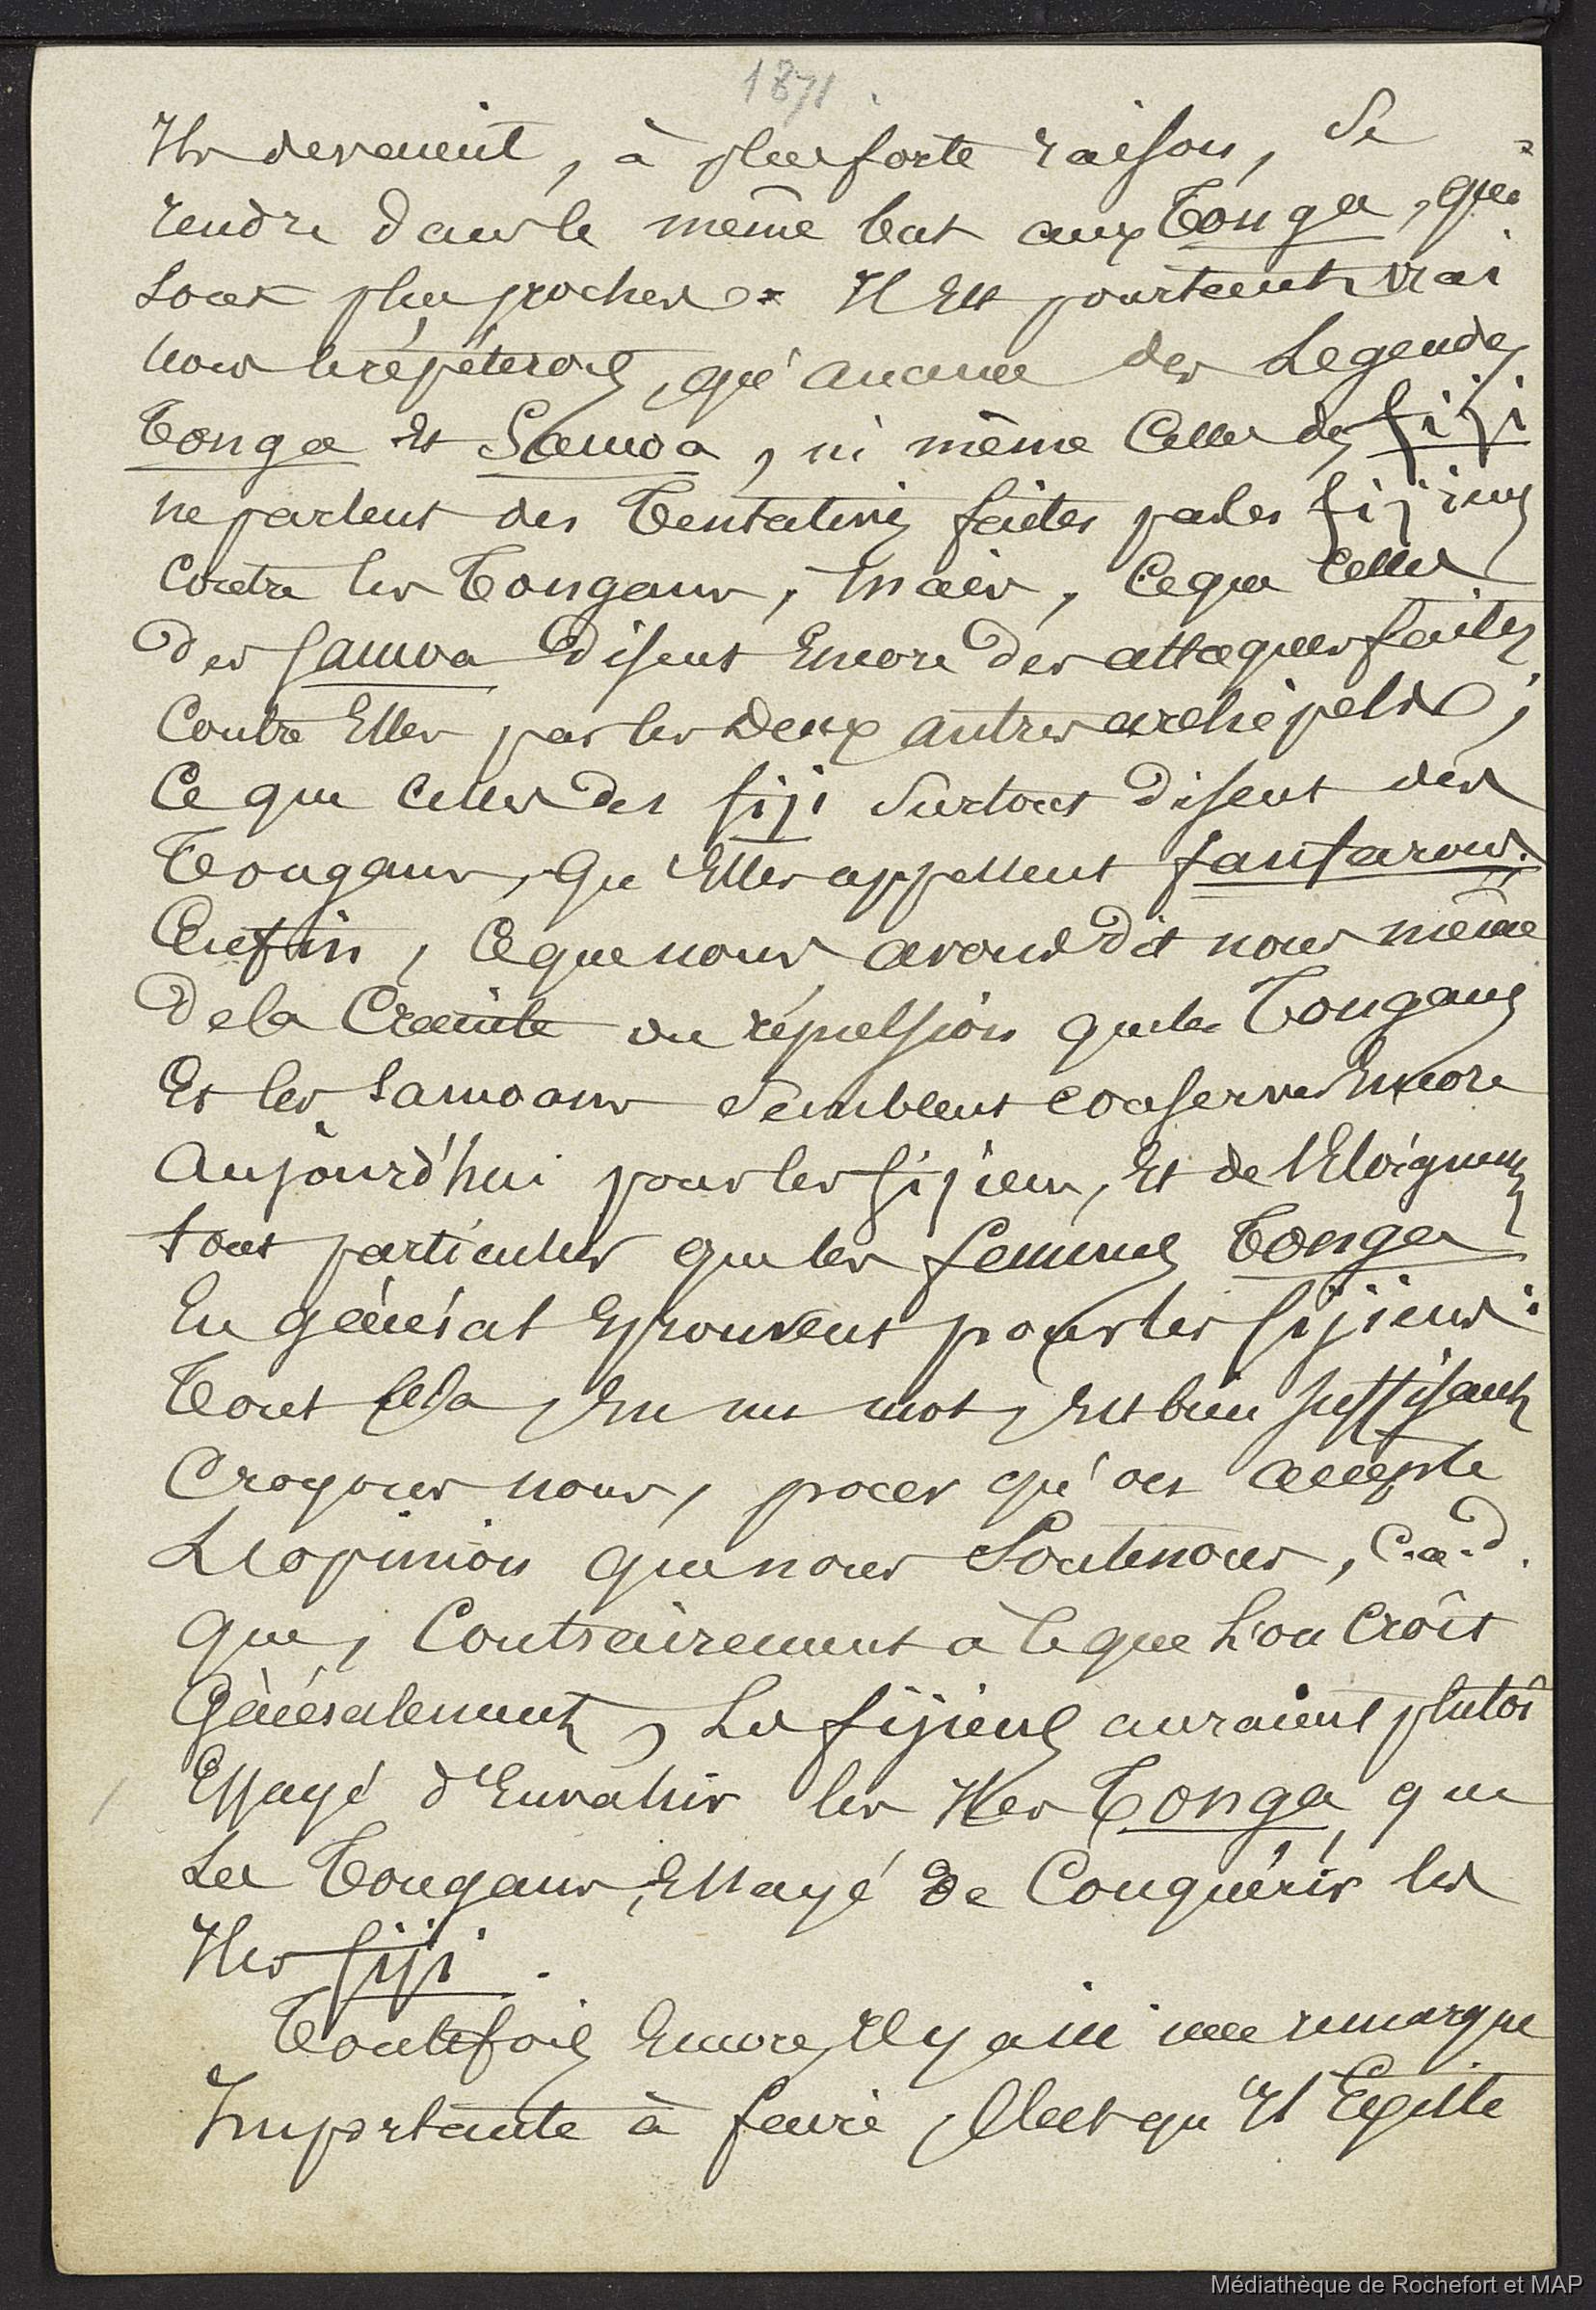 1871.
Ils devaient, à plus forte raison, se
rendre dans le même but aux Tonga, qui
sont plus proches. Il est pourtant vrai
nous le répéterons, qu'aucune des Légendes
Tonga et Samoa, ni même celles des fiji
ne parlent des Tentatives faites par les fijiens
contre les Tongans, mais, ce que celles
des Samoa disent encore des attaques faites
contre Elles par les deux autres archipels ;
Ce que celles des fiji surtout disent des
Tongans, qu'Elles appellent fanfarons;
Enfin, ce que nous avons dit nous même
De la Crainte ou répulsion que les Tongans
Et les Samoans semblent conserver Encore
Aujourd'hui pour les fijiens, Et de l'Eloignemt
tout particulier que les femmes Tonga
En général Eprouvent pour les fijiens :
Tout cela, En un mot, Est bien suffisant
Croyons nous, pour qu'on accepte
L'opinion que nous Soutenons, C.a.d.
que, Contrairement à ce que l'on Croit
Généralement, Les fijiens auraient plutôt
Essayé d'Envahir les Iles Tonga, que
Les Tongans Essayé de Conquérir les
Iles fiji.
Toutefois Encore, Il y a ici une remarque
Importante à faire, C'est qu'Il Existe
Médiathèque de Rochefort et MAP